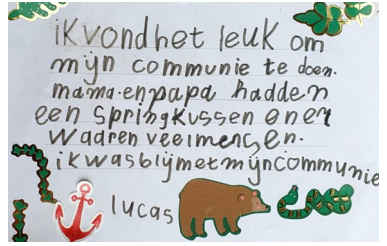 ik vond het leuk om
mijn communie te doen.
mama. en papa hadden
een springkussen en er
waaren veel mensen.
ik was blij met mijn communie
lucas